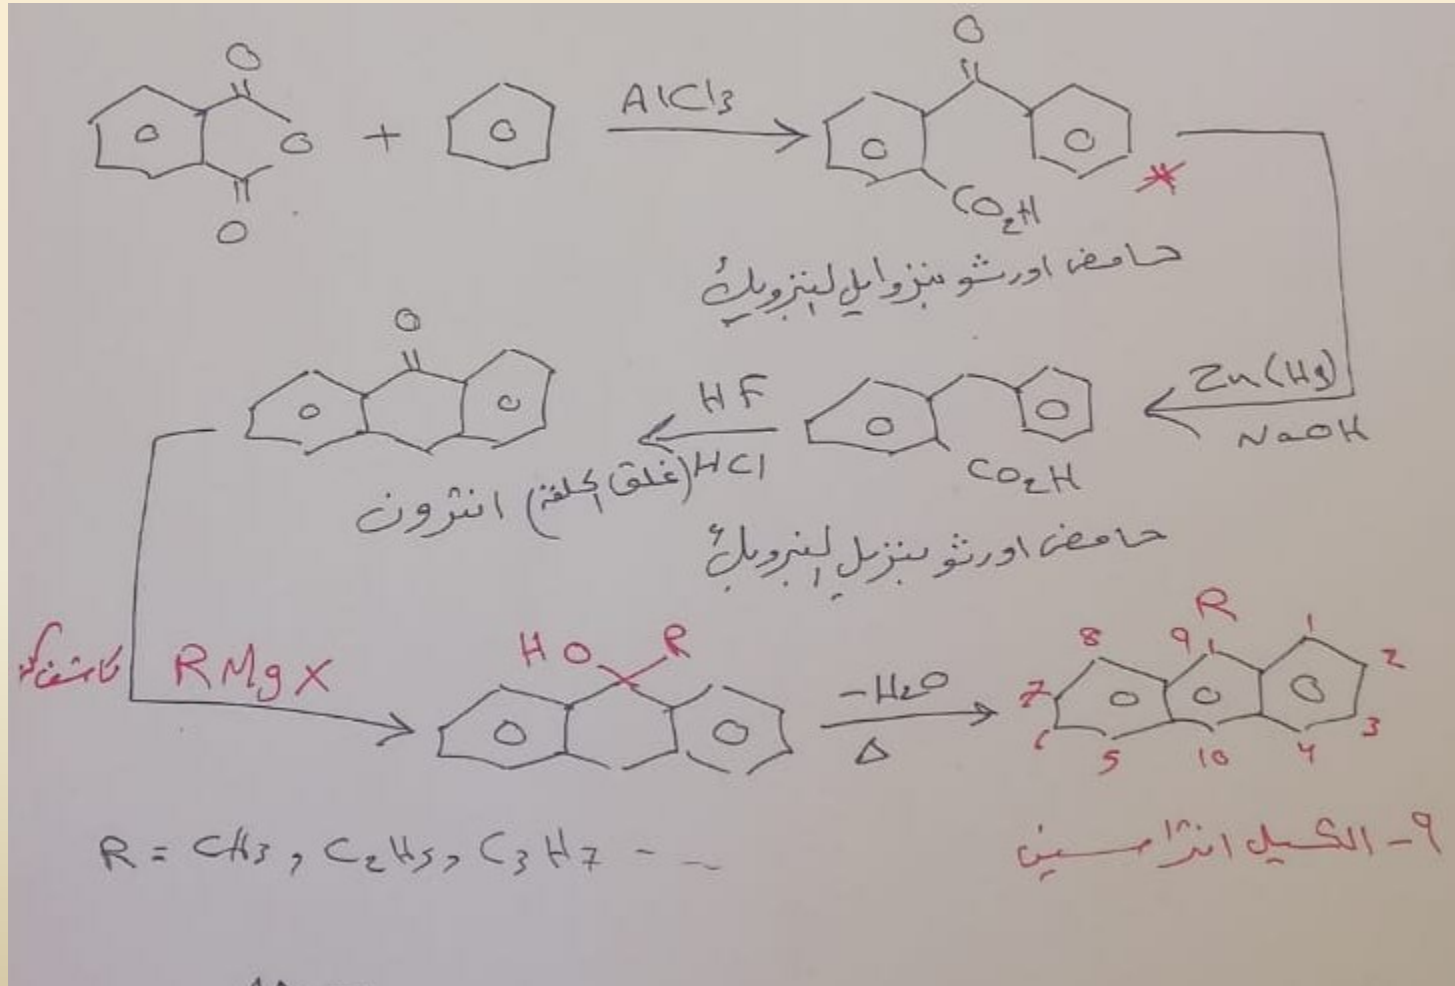 O O
O + O O AlCl3 O O
O CO2H
حامض اورثو بنزوايل لبنزويك
O Zn(Hg)
O O HF O O NaOH
HCl CO2H
(غلق الحلقة) انثرون
حامض اورثو بنزيل لبنزويك
كاشف RMgX HO R -H2O R
O O Δ O O O
8 9 1 2
7 6 5 10 4 3
R = CH3, C2H5, C3H7 - -
9- الكيل انثراسين